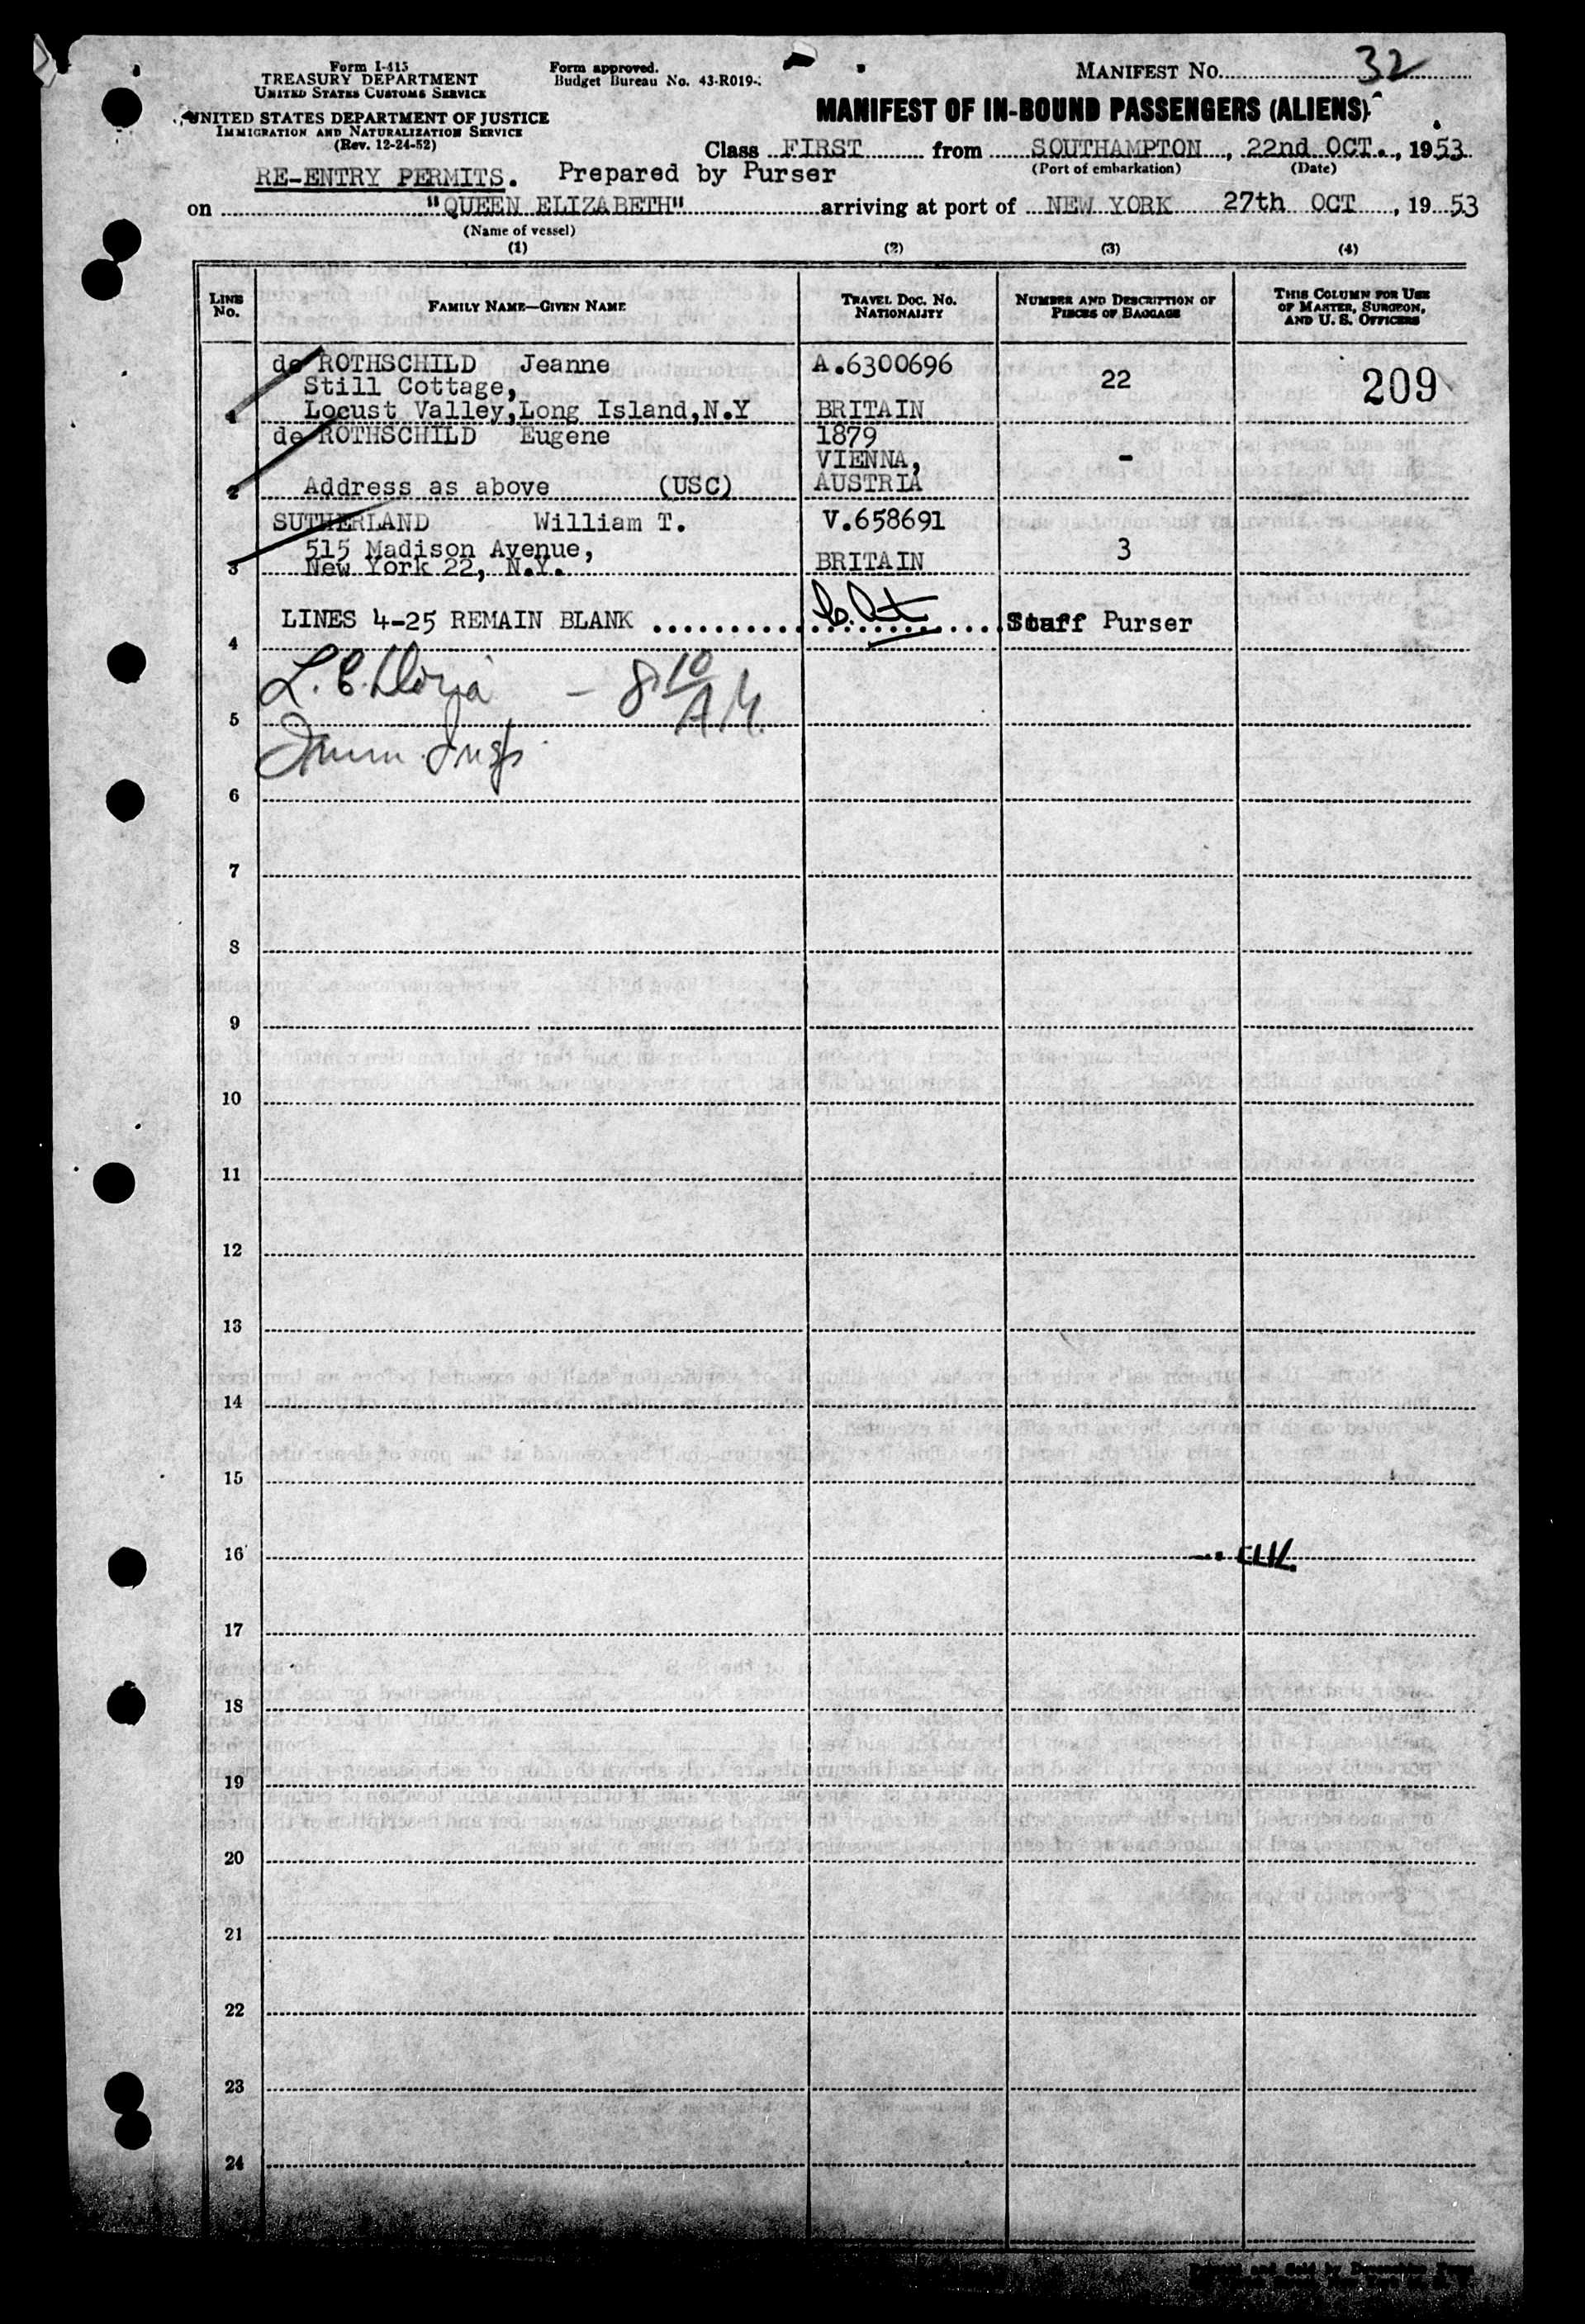 Form I-415
TREASURY DEPARTMENT
UNITED STATES CUSTOMS SERVICE
UNITED STATES DEPARTMENT OF JUSTICE
IMMIGRATION AND NATURALIZATION SERVICE
(Rev. 12-24-52)
Form approved.
Budget Bureau No. 43-R019-
MANIFEST No. 32
MANIFEST OF IN-BOUND PASSENGERS (ALIENS)
Class FIRST from SOUTHAMPTON, 22nd OCT., 1953
(Port of embarkation) (Date)
RE-ENTRY PERMITS. Prepared by Purser
on "QUEEN ELIZABETH" arriving at port of NEW YORK 27th OCT, 1953
(Name of vessel)
(1) (2) (3) (4)
LINE No. FAMILY NAME—GIVEN NAME TRAVEL DOC. NO. NATIONALITY NUMBER AND DESCRIPTION OF PIECES OF BAGGAGE THIS COLUMN FOR USE OF MASTER, SURGEON, AND U. S. OFFICERS
de ROTHSCHILD Jeanne A.6300696
Still Cottage, 22 209
1 Locust Valley, Long Island, N.Y BRITAIN
de ROTHSCHILD Eugene 1879
VIENNA, -
2 Address as above (USC) AUSTRIA
SUTHERLAND William T. V.658691
515 Madison Avenue, 3
3 New York 22, N.Y. BRITAIN
LINES 4-25 REMAIN BLANK ........ Staff Purser
4
L. E. Doria - 8 10 A.M.
5
Immn. Insp.
6
7
8
9
10
11
12
13
14
15
16
17
18
19
20
21
22
23
24